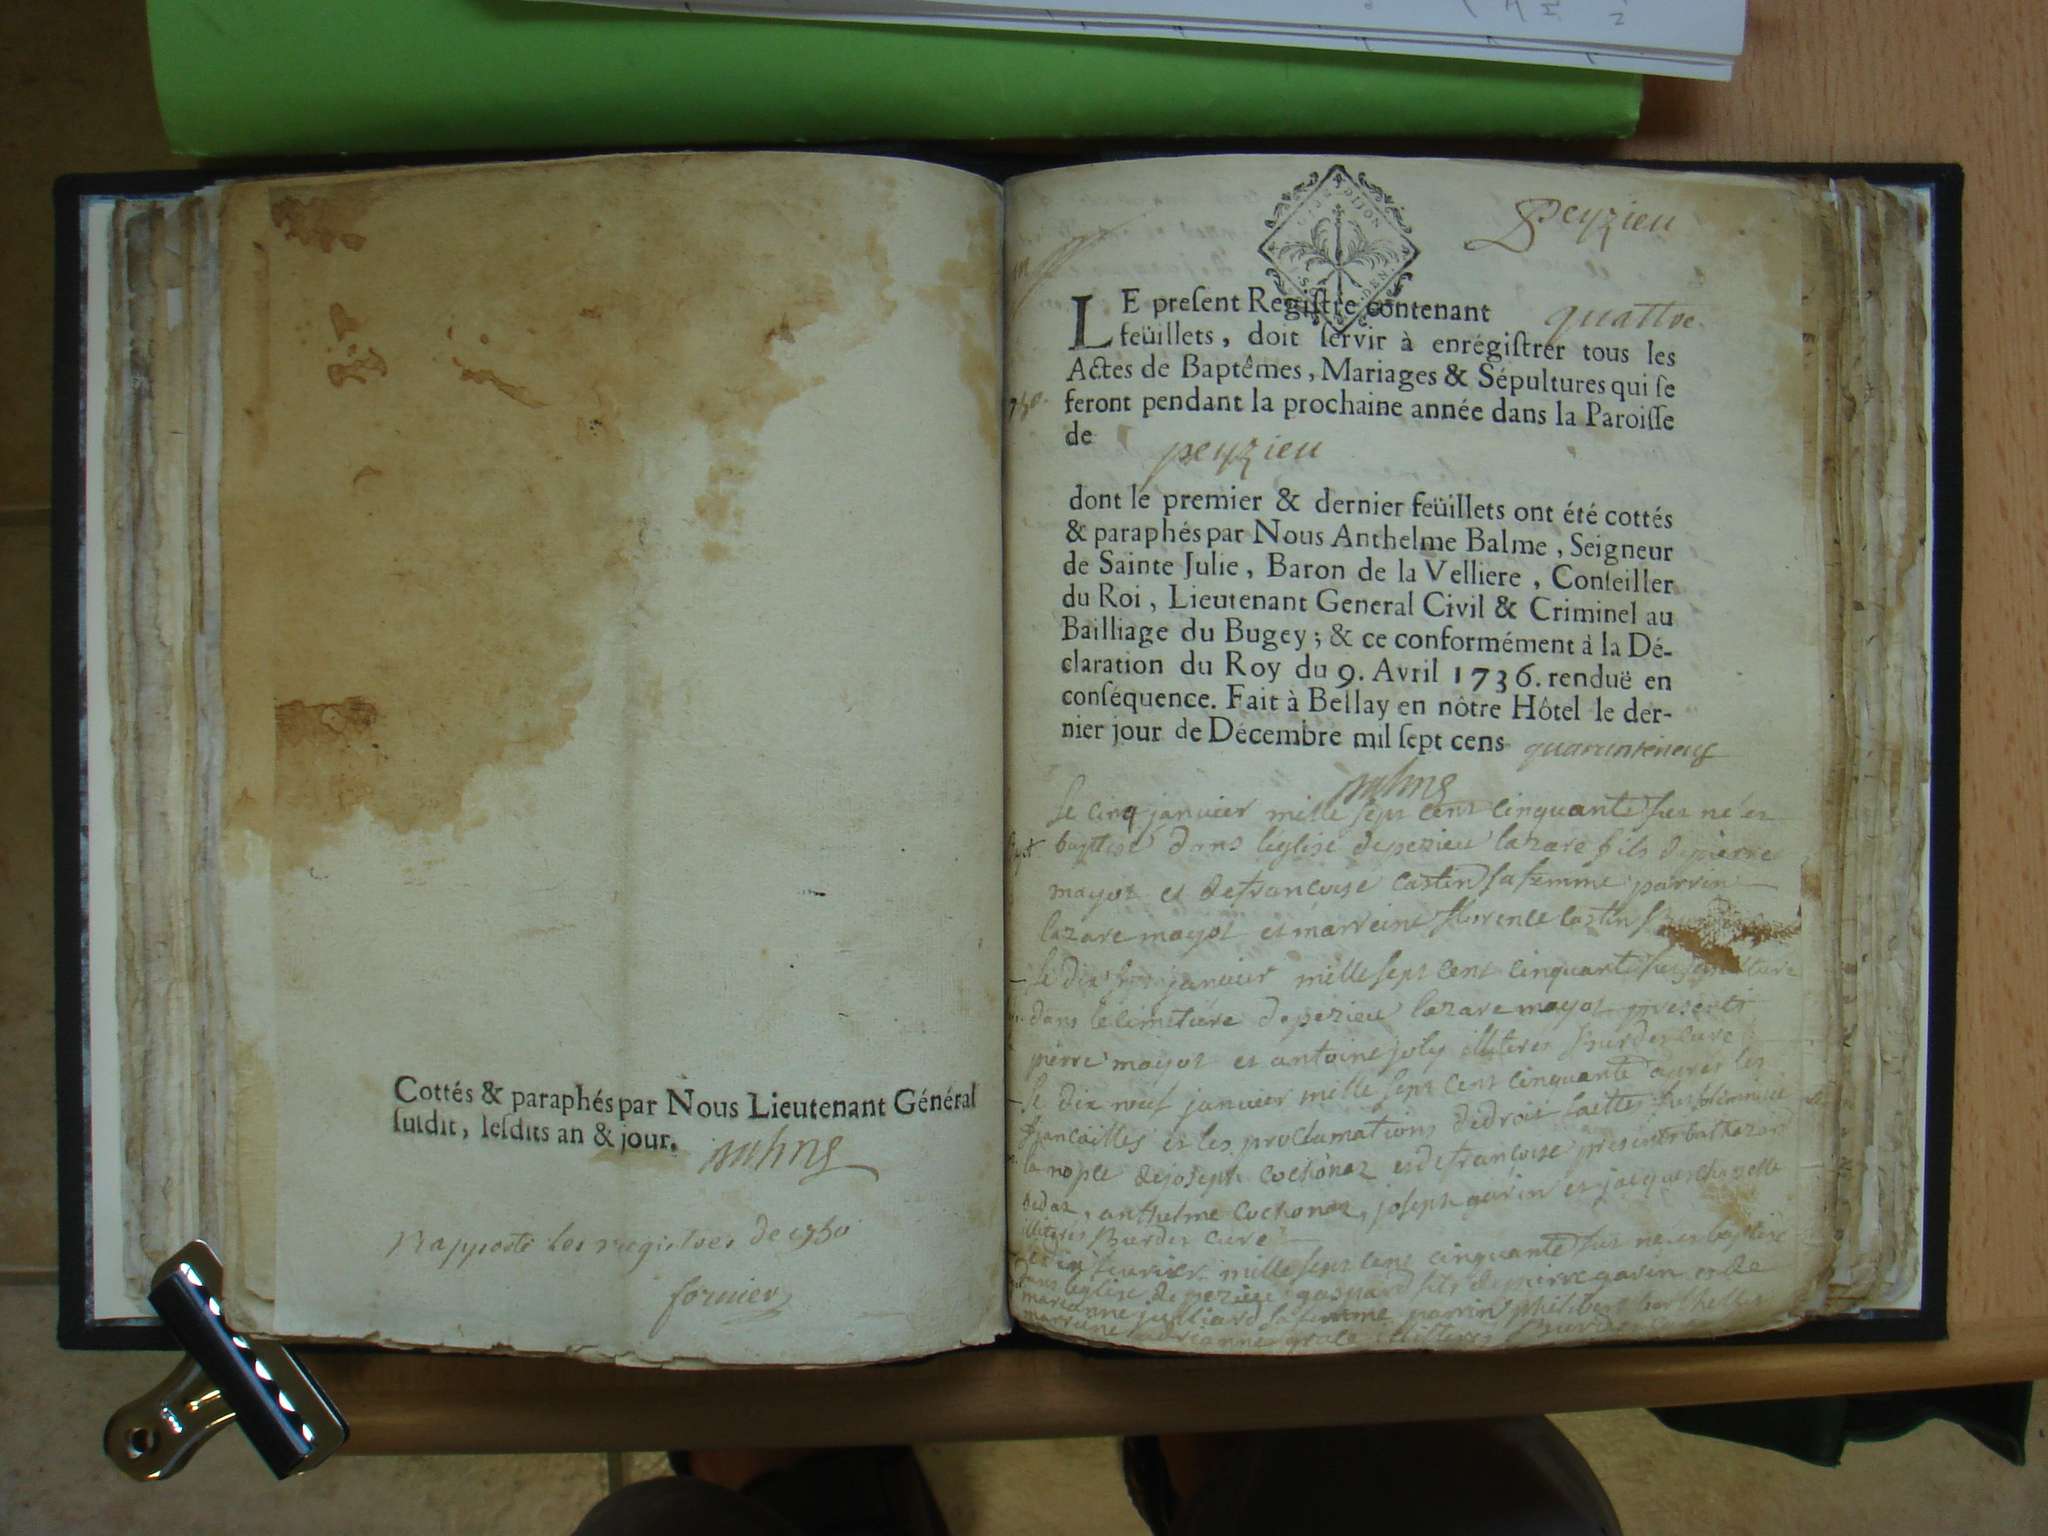 Cottés & paraphés par Nous Lieutenant Général
ſuſdit, leſdits an & jour.
Rapporté les registres de 1750
fornier
peyzieu
LE preſent Regiſtre contenant quattre
feüillets, doit ſervir à enrégiſtrer tous les
Actes de Baptêmes, Mariages & Sépultures qui ſe
feront pendant la prochaine année dans la Paroiſſe
de peyzieu
dont le premier & dernier feüillets ont été cottés
& paraphés par Nous Anthelme Balme, Seigneur
de Sainte Julie, Baron de la Velliere, Conſeiller
du Roi, Lieutenant General Civil & Criminel au
Bailliage du Bugey; & ce conformément à la Dé-
claration du Roy du 9. Avril 1736. renduë en
conſéquence. Fait à Bellay en nôtre Hôtel le der-
nier jour de Décembre mil ſept cens quaranteneuf
le cinq janvier mille sept cent cinquante fut né et
baptisé dans l'eglise de pezieu lazare fils de pierre
mayot et de francoise castin sa femme parrin
lazare mayot et marreine florence castin
le dix janvier mille sept cent cinquante fut
dans le cimetiére de pezieu lazare mayot presents
pierre mayot et antoine joly illiteres Burdet curé
le dix neuf janvier mille sept cent cinquante apres les
fiancailles et les proclamations de droit faittes fut
la nople de joseph cochonat et de francoise presents baltazard
dedat, anthelme cochonat, joseph garin et jacque chapelle
illiteres Burdet curé
fevrier mille sept cent cinquante fut né et baptisé
dans leglise de pezieu gaspard fils de pierre garin et de
marianne julliard sa femme parrin philibert berthellet
marreine marianne illiteres Burdet